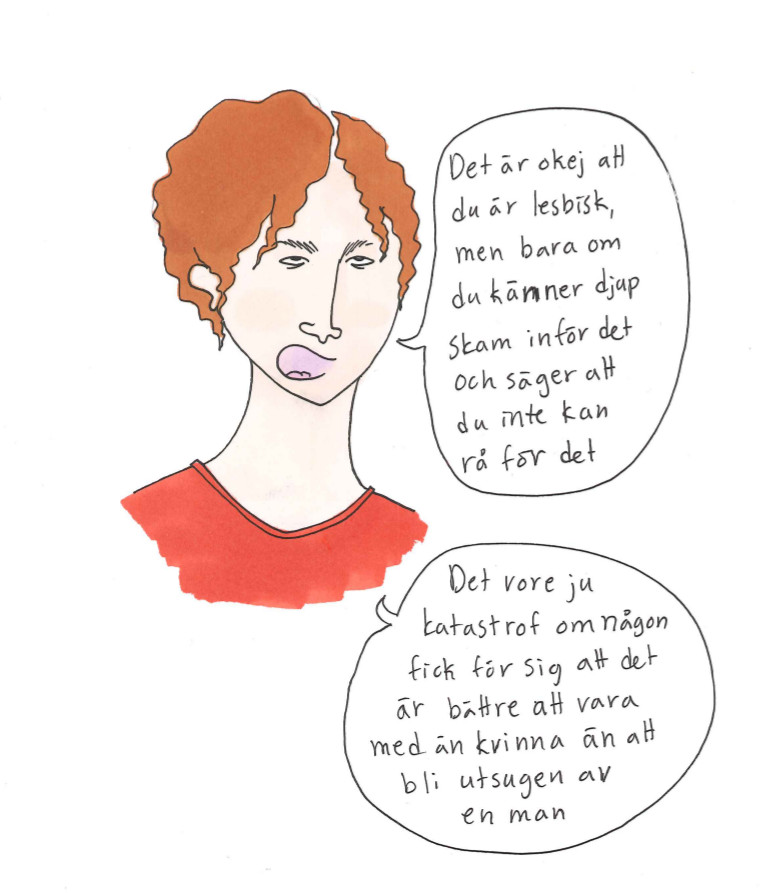 Det är okej att
du är lesbisk,
men bara om
du känner djup
skam inför det
och säger att
du inte kan
rå för det
Det vore ju
katastrof om någon
fick för sig att det
är bättre att vara
med än kvinna än att
bli utsugen av
en man